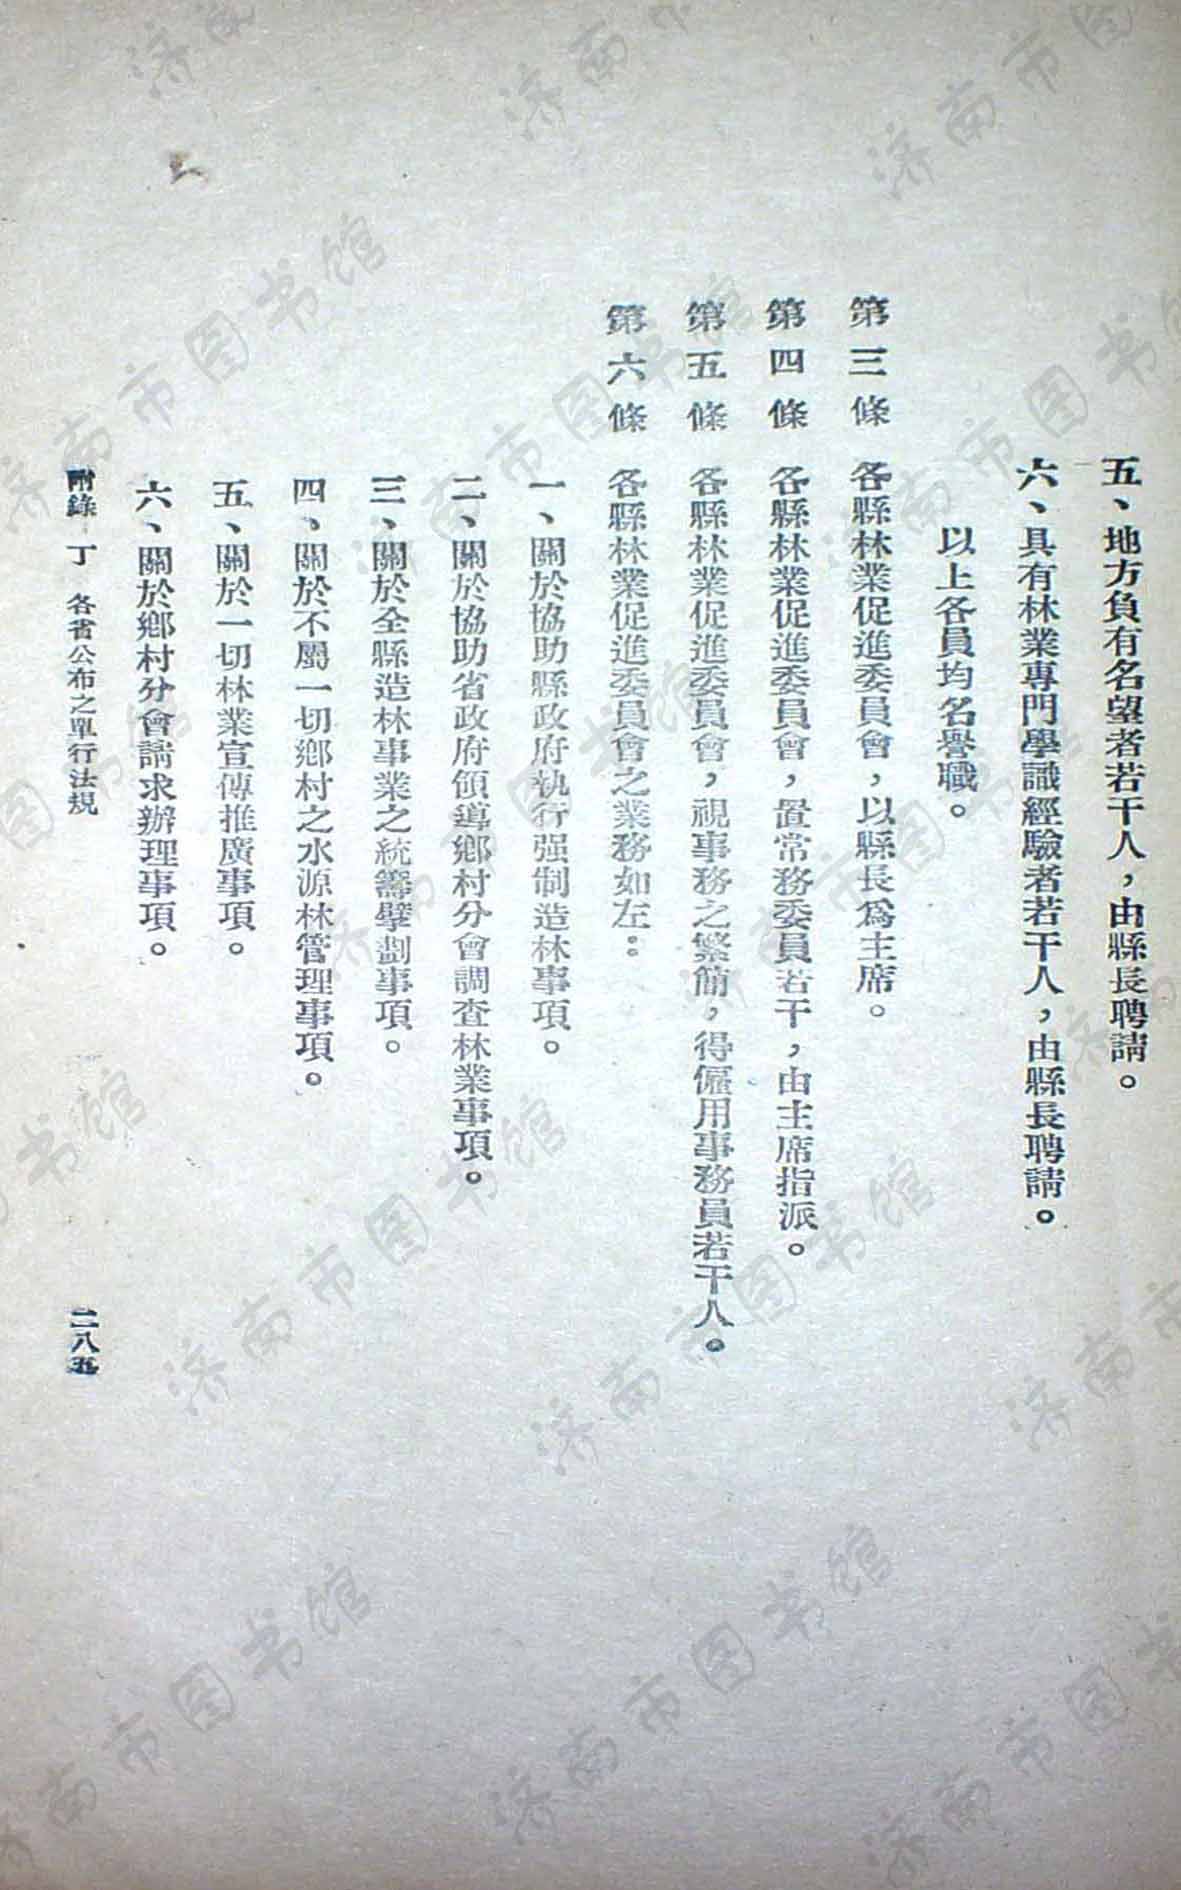 五、地方負有名望者若干人，由縣長聘請。
六、具有林業專門學識經驗者若干人，由縣長聘請。
以上各員均名譽職。
第三條　各縣林業促進委員會，以縣長爲主席。
第四條　各縣林業促進委員會，置常務委員若干，由主席指派。
第五條　各縣林業促進委員會，視事務之繁簡，得僱用事務員若干人。
第六條　各縣林業促進委員會之業務如左：
一、關於協助縣政府執行强制造林事項。
二、關於協助省政府領導鄉村分會調查林業事項。
三、關於全縣造林事業之統籌擘劃事項。
四、關於不屬一切鄉村之水源林管理事項。
五、關於一切林業宣傳推廣事項。
六、關於鄉村分會請求辦理事項。
附錄　丁　各省公布之單行法規
二八五
济南市图书馆